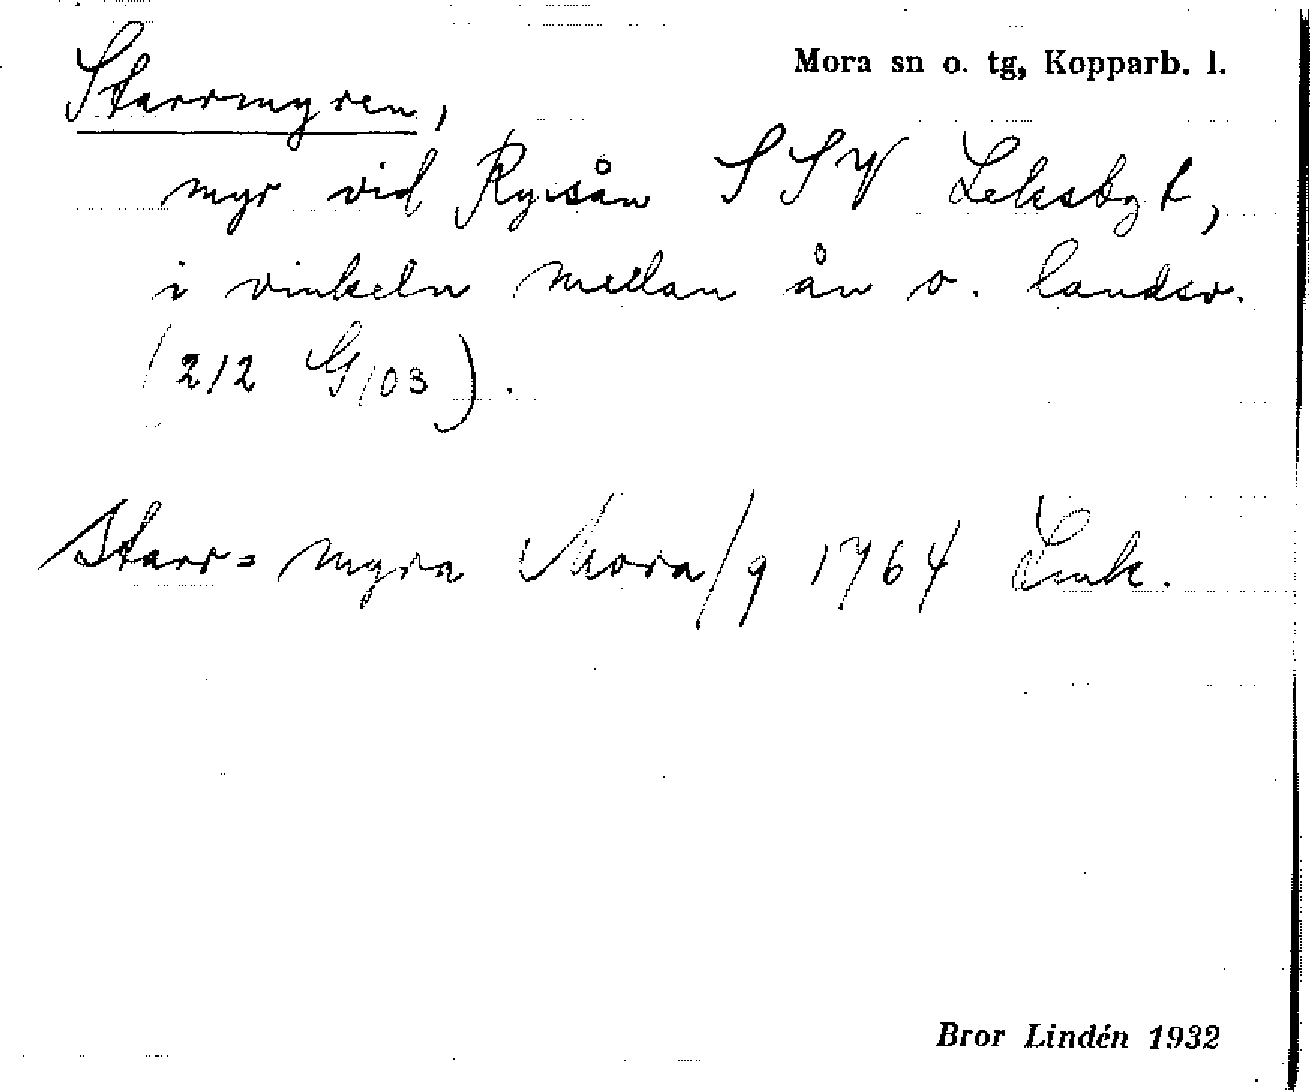 Mora sn o. tg, Kopparb. l.
Starrmyren,
myr vid Rysån SSV Leksbyt,
i vinkeln mellan ån o. landsv.
(212 G/03).
Starr= myra Mora/9 1764 Lmk.
Bror Lindén 1932